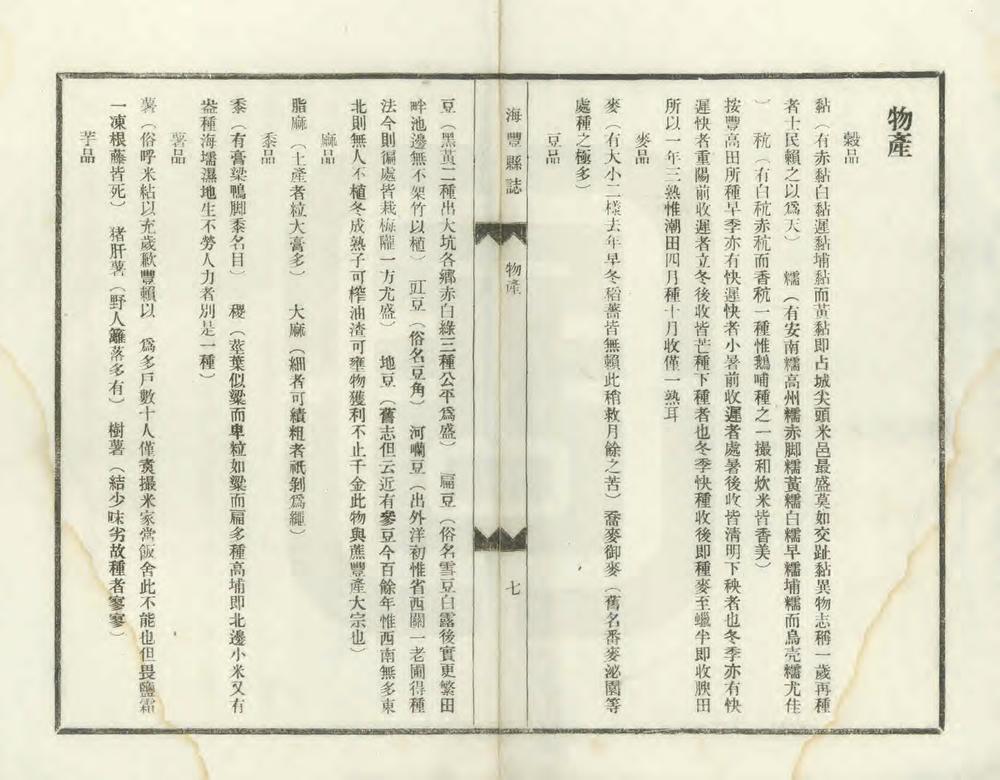 物產
穀品
黏（有赤黏白黏遲黏埔黏而黃黏即占城尖頭米邑最盛莫如交趾黏異物志稱一歲再種
者士民賴之以爲天）　糯（有安南糯高州糯赤脚糯黃糯白糯早糯埔糯而烏壳糯尤佳
）　秔（有白秔赤秔而香秔一種惟鵝哺種之一撮和炊米皆香美）
按豐高田所種早季亦有快遲快者小暑前收遲者處暑後收皆清明下秧者也冬季亦有快
遲快者重陽前收遲者立冬後收皆芒種下種者也冬季快種收後即種麥至蠟半即收腴田
所以一年三熟惟潮田四月種十月收僅一熟耳
麥品
麥（有大小二樣去年早冬稻薔皆無賴此稍救月餘之苦）喬麥御麥（舊名番麥泌園等
處種之極多）
豆品
海豐縣誌
物產
七
豆（黑黃二種出大坑各鄉赤白綠三種公平爲盛）　扁豆（俗名雪豆白露後實更繁田
畔池邊無不架竹以植）　豇豆（俗名豆角）　河囒豆（出外洋初惟省西關一老圃得種
法今則徧處皆栽梅隴一方尤盛）　地豆（舊志但云近有參豆今百餘年惟西南無多東
北則無人不植冬成熟子可榨油渣可壅物獲利不止千金此物與蔗豐產大宗也）
麻品
脂麻（土產者粒大膏多）　大麻（細者可績粗者祇剝爲繩）
黍品
黍（有膏粱鴨脚黍名目）　稷（莖葉似粱而卑粒如粱而扁多種高埔即北邊小米又有
峚種海壖濕地生不勞人力者別是一種）
薯品
薯（俗呼米粘以充歲歉豐賴以　爲多戸數十人僅煑撮米家常飯舍此不能也但畏鹽霜
一凍根藤皆死）　猪肝薯（野人籬落多有）　樹薯（結少味劣故種者寥寥）
芋品